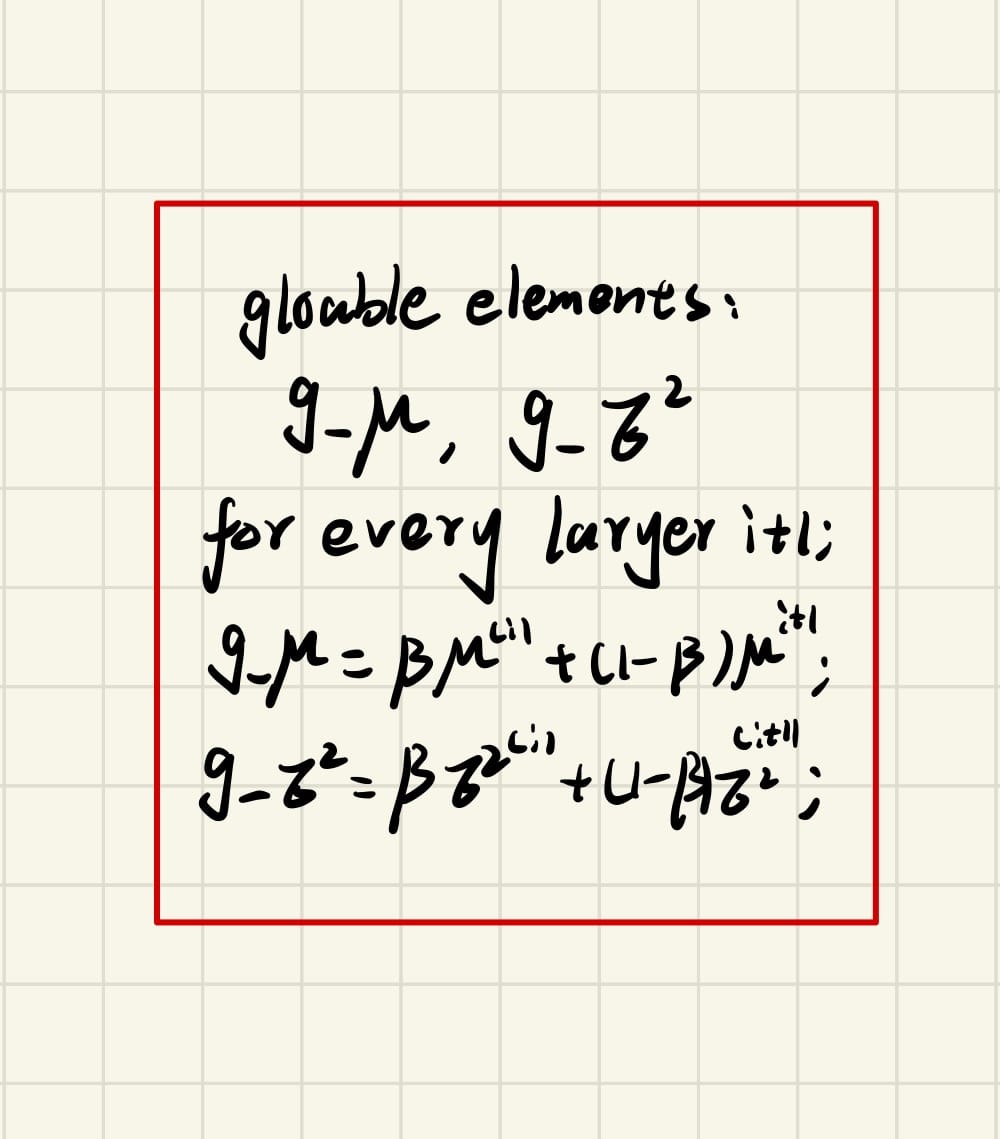 gloable elements:
g_μ, g_σ²
for every larger i+1;
g_μ = βμ^(i) + (1-β)μ^i+1;
g_σ² = βσ²^(i) + (1-β)σ²^(i+1);